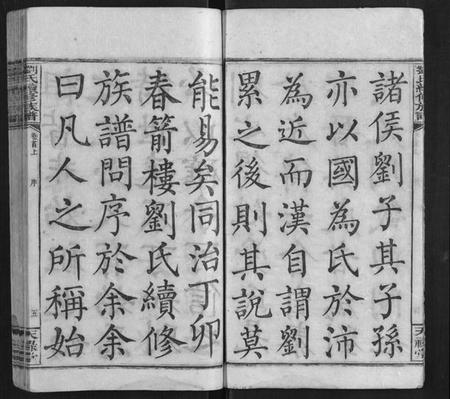 諸侯劉子其子孫
亦以國為氏於沛
為近而漢自謂劉
累之後則其說莫
能易矣同治丁卯
春箭樓劉氏續修
族譜問序於余余
曰凡人之所稱始
劉氏續修族譜
卷首上
序
五
天祿堂